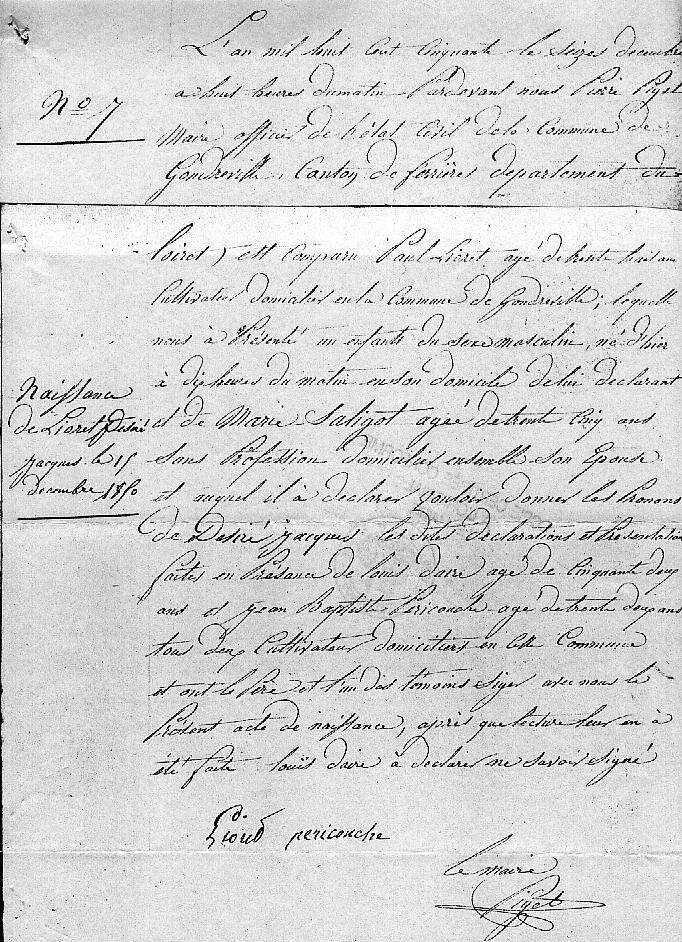 L'an mil huit cent cinquante le seizes decembre
a huit heures du matin Pardevant nous Pierre Piget
No 7
Maire officier de l'état Civil de la Commune de
Gondreville, Canton de ferrières departement du
loiret, est Comparu Paul Lioret agé de trente huit ans
Cultivateur domicilier en la Commune de Gondreville; lequelle
nous à Présenté un enfants du sexe masculin, né d'hier
à dix heures du matin en son domicile de lui déclarant
Naissance
de Lioret Desiré
Jacques le 15
decembre 1850
et de Marie Saligot agée de trente Cinq ans
sans Profession domicilier ensemble son Epouse
et auquel il à declarer vouloir donner les Prenoms
de Desiré Jacques les dites declarations et Présentation
faites en Présance de louis daire agé de Cinquante deux
ans et Jean Baptiste Périconche agé de trente deux ans
tous deux Cultivateur domiciliers en cette Commune
et ont le Père et l'un des témoins signer avec nous le
Présent acte de naissance, après que lecture leur en à
été faite louis daire à declarer ne savoir signé
periconche
le maire
Piget